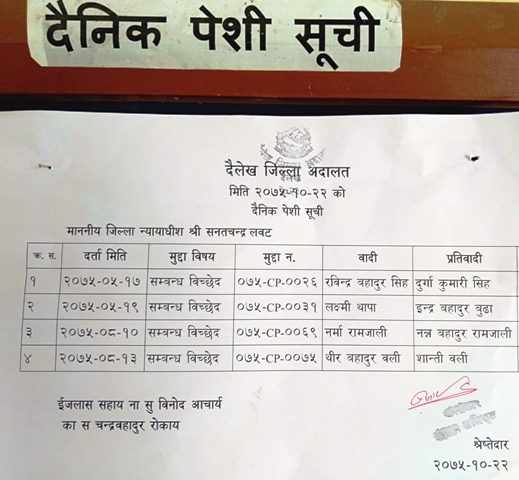 दैनिक पेशी सूची
दैलेख जिल्ला अदालत
मिति २०७५-१०-२२ को
दैनिक पेशी सूची
माननीय जिल्ला न्यायाधीश श्री सनतचन्द्र लवट
क्र. स. दर्ता मिति मुद्दा विषय मुद्दा न. वादी प्रतिवादी
१ २०७५-०५-१७ सम्बन्ध विच्छेद ०७५-CP-००२६ रविन्द्र बहादुर सिह दुर्गा कुमारी सिह
२ २०७५-०५-१९ सम्बन्ध विच्छेद ०७५-CP-००३१ लक्ष्मी थापा इन्द्र बहादुर बुढा
३ २०७५-०८-१० सम्बन्ध विच्छेद ०७५-CP-००६९ नर्मा रामजाली नन्न बहादुर रामजाली
४ २०७५-०८-१३ सम्बन्ध विच्छेद ०७५-CP-००७५ धीर बहादुर वली शान्ती वली
ईजलास सहाय ना सु विनोद आचार्य
का स चन्द्रवहादुर रोकाय
श्रेष्तेदार
२०७५-१०-२२